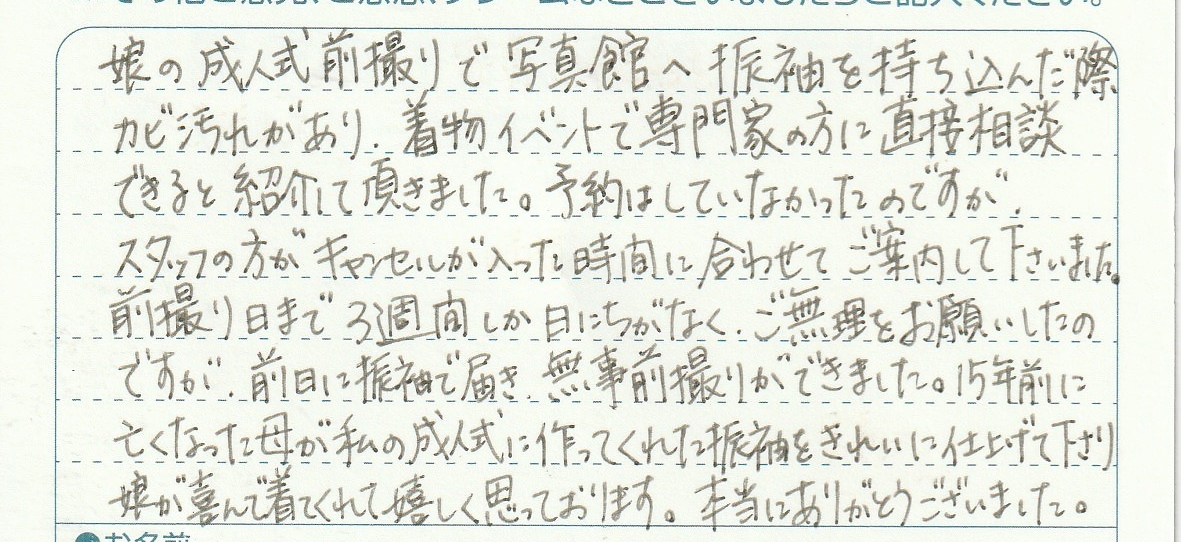 娘の成人式前撮りで写真館へ振袖を持ち込んだ際
カビ汚れがあり、着物イベントで専門家の方に直接相談
できると紹介して頂きました。予約はしていなかったのですが、
スタッフの方がキャンセルが入った時間に合わせてご案内して下さいました。
前撮り日まで3週間しか日にちがなく、ご無理をお願いしたの
ですが、前日に振袖で届き、無事前撮りができました。15年前に
亡くなった母が私の成人式に作ってくれた振袖をきれいに仕上げて下さり
娘が喜んで着てくれて嬉しく思っております。本当にありがとうございました。
お名前